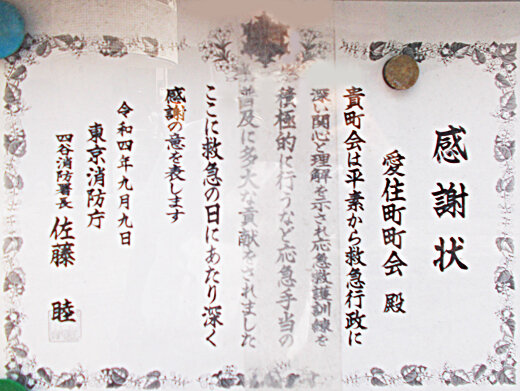 感謝状
愛住町町会 殿
貴町会は平素から救急行政に
深い関心と理解を示され応急救護訓練を
積極的に行うなど応急手当の
普及に多大な貢献をされました
ここに救急の日にあたり深く
感謝の意を表します
令和四年九月九日
東京消防庁
四谷消防署長 佐藤 睦